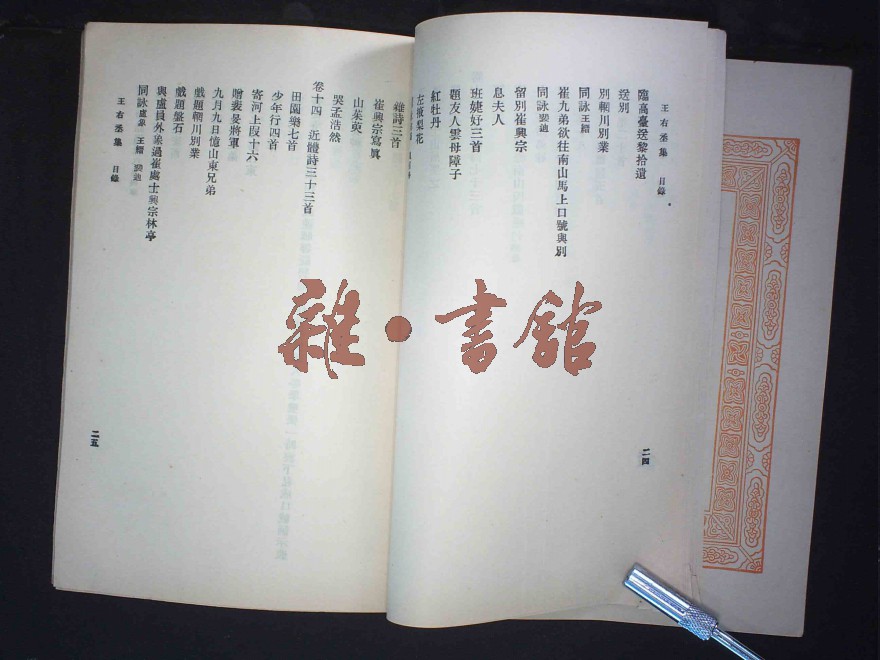 王右丞集 目錄
臨高臺送黎拾遺
送別
別輞川別業
同詠 王縉
崔九弟欲往南山馬上口號與別
同詠 裴迪
留別崔興宗
息夫人
班婕妤三首
題友人雲母障子
紅牡丹
左掖梨花
二四
雜詩三首
崔興宗寫真
山茱萸
哭孟浩然
卷十四 近體詩三十三首
田園樂七首
少年行四首
寄河上段十六
贈裴旻將軍
九月九日憶山東兄弟
戲題輞川別業
戲題盤石
與盧員外象過崔處士興宗林亭
同詠 盧象 王縉 裴迪
王右丞集 目錄
二五
雜·書館